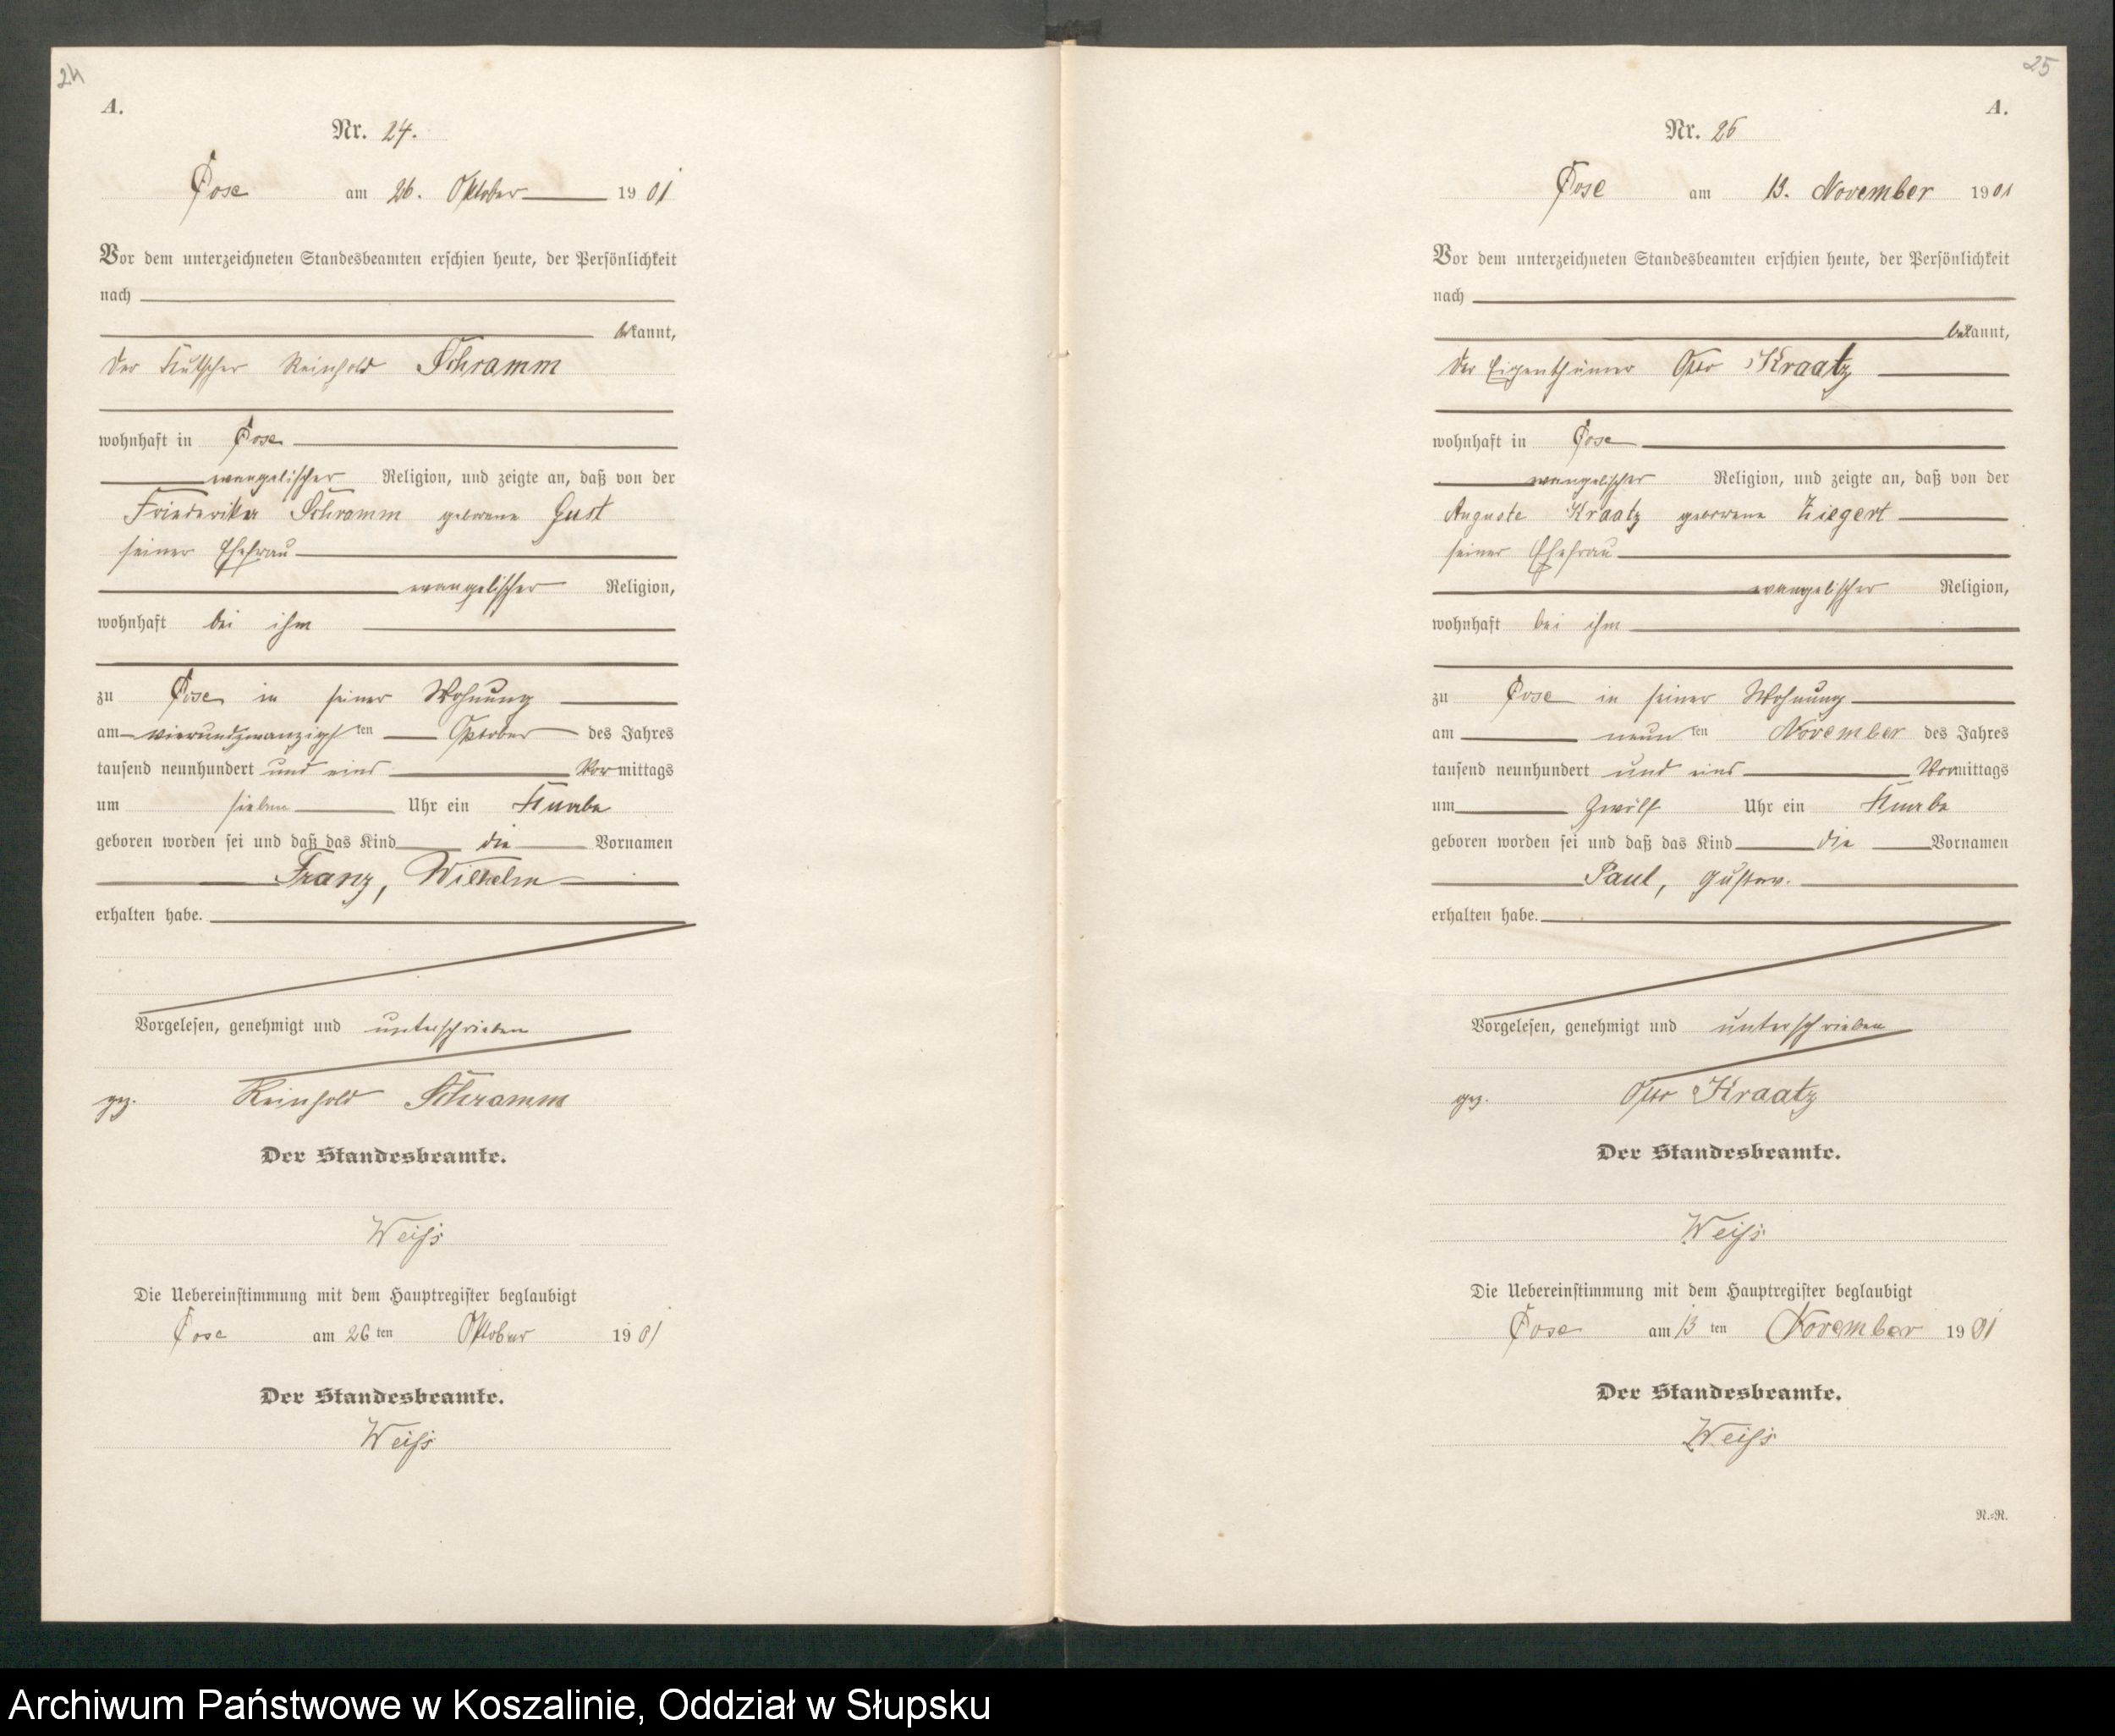 24
A.
Nr. 24.
Cose am 26. Oktober 1901
Vor dem unterzeichneten Standesbeamten erschien heute, der Persönlichkeit
nach
bekannt,
der Kutscher Reinhold Schramm
wohnhaft in Cose
evangelischer Religion, und zeigte an, daß von der
Friederike Schramm geborene Gust
seiner Ehefrau
evangelischer Religion,
wohnhaft bei ihm
zu Cose in seiner Wohnung
am vierundzwanzigsten Oktober des Jahres
tausend neunhundert und eins Vormittags
um sieben Uhr ein Knabe
geboren worden sei und daß das Kind die Vornamen
Franz, Wilhelm
erhalten habe.
Vorgelesen, genehmigt und unterschrieben
gez. Reinhold Schramm
Der Standesbeamte.
Weiß
Die Uebereinstimmung mit dem Hauptregister beglaubigt
Cose am 26ten Oktober 1901
Der Standesbeamte.
Weiß
25
A.
Nr. 25
Cose am 13. November 1901
Vor dem unterzeichneten Standesbeamten erschien heute, der Persönlichkeit
nach
bekannt,
der Eigenthümer Otto Kraatz
wohnhaft in Cose
evangelischer Religion, und zeigte an, daß von der
Auguste Kraatz geborene Ziegert
seiner Ehefrau
evangelischer Religion,
wohnhaft bei ihm
zu Cose in seiner Wohnung
am neunten November des Jahres
tausend neunhundert und eins Vormittags
um zwölf Uhr ein Knabe
geboren worden sei und daß das Kind die Vornamen
Paul, Gustav.
erhalten habe.
Vorgelesen, genehmigt und unterschrieben
gez. Otto Kraatz
Der Standesbeamte.
Weiß
Die Uebereinstimmung mit dem Hauptregister beglaubigt
Cose am 13ten November 1901
Der Standesbeamte.
Weiß
N.=R.
Archiwum Państwowe w Koszalinie, Oddział w Słupsku